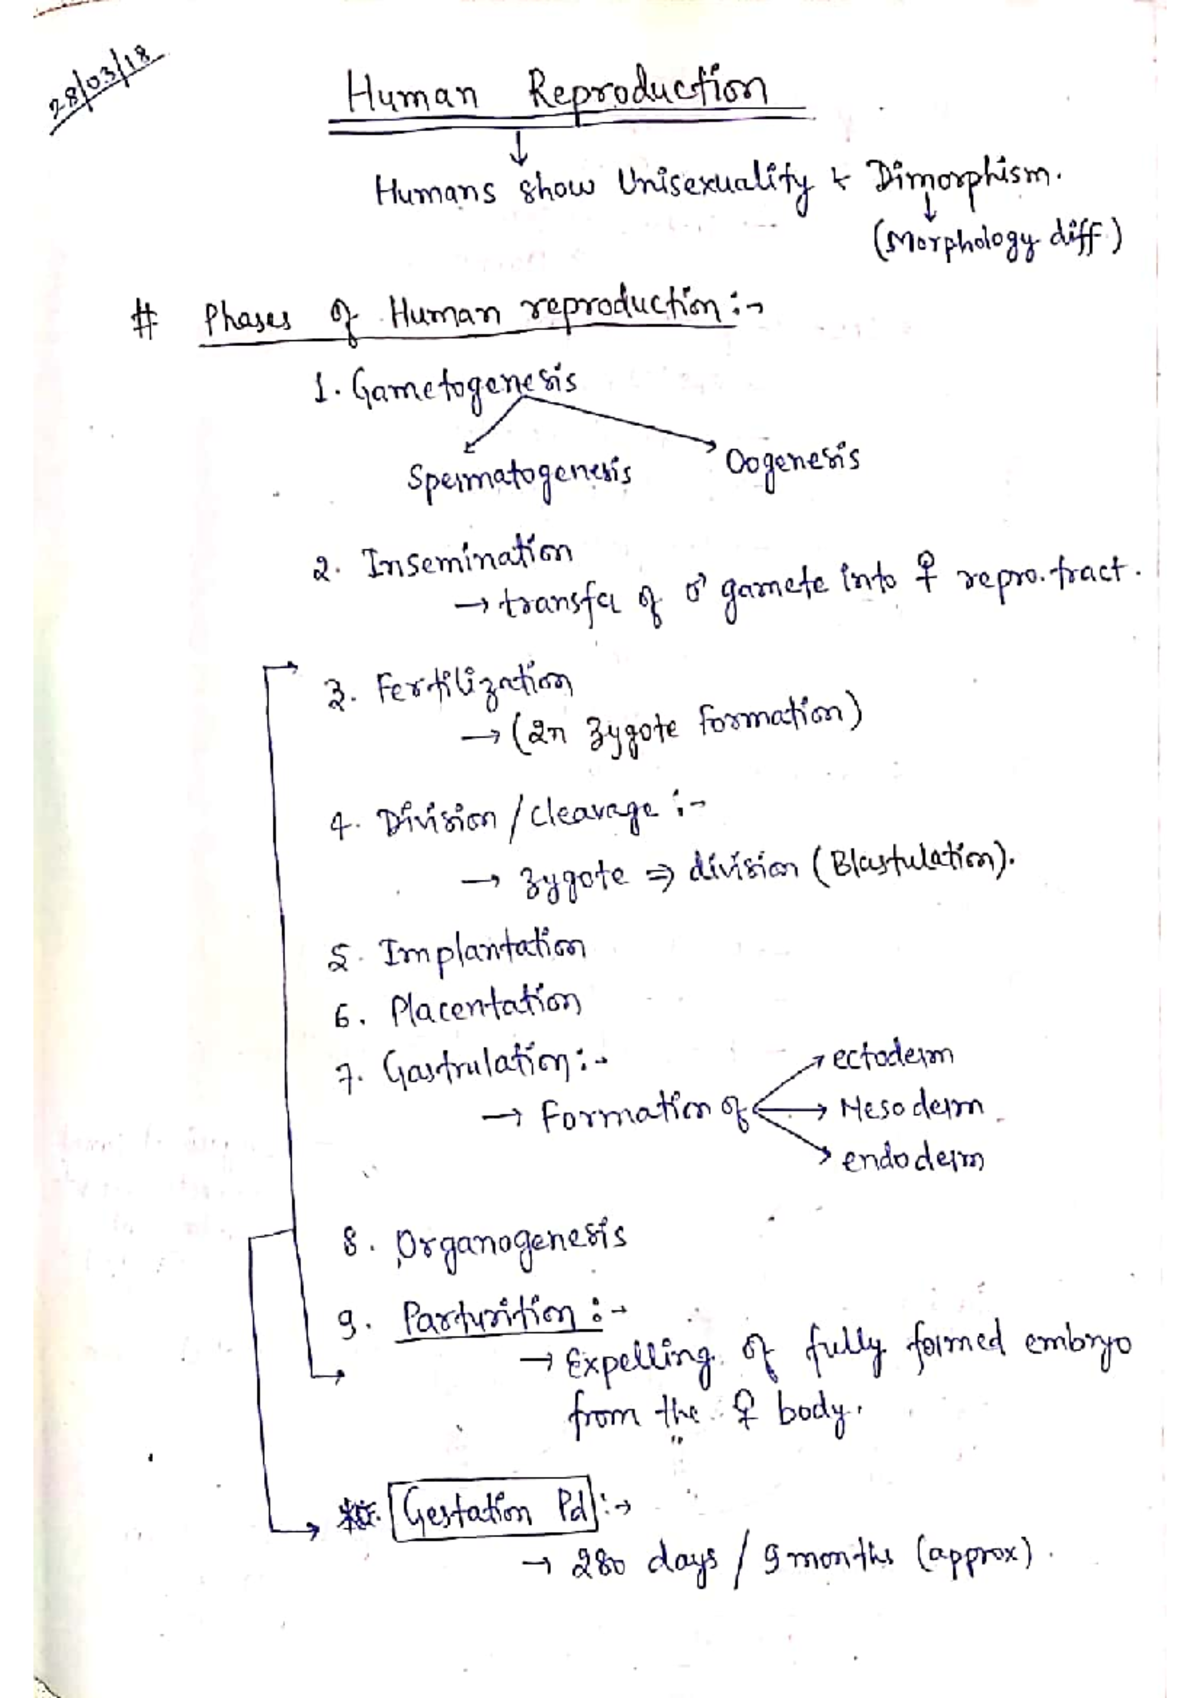 28/03/18
Human Reproduction
↓
Humans show Unisexuality & Dimorphism.
↓
(Morphology diff.)
# Phases of Human reproduction :→
1. Gametogenesis
Spermatogenesis Oogenesis
2. Insemination
→ transfer of ♂ gamete into ♀ repro. tract.
3. Fertilization
→ (2n zygote formation)
4. Division / cleavage :-
→ zygote ⇒ division (Blastulation).
5. Implantation
6. Placentation
7. Gastrulation :-
→ ectoderm
→ Formation of → Mesoderm
→ endoderm
8. Organogenesis
9. Parturition :→
→ Expelling of fully formed embryo
from the ♀ body.
Gestation Pd :→
→ 280 days / 9 months (approx).